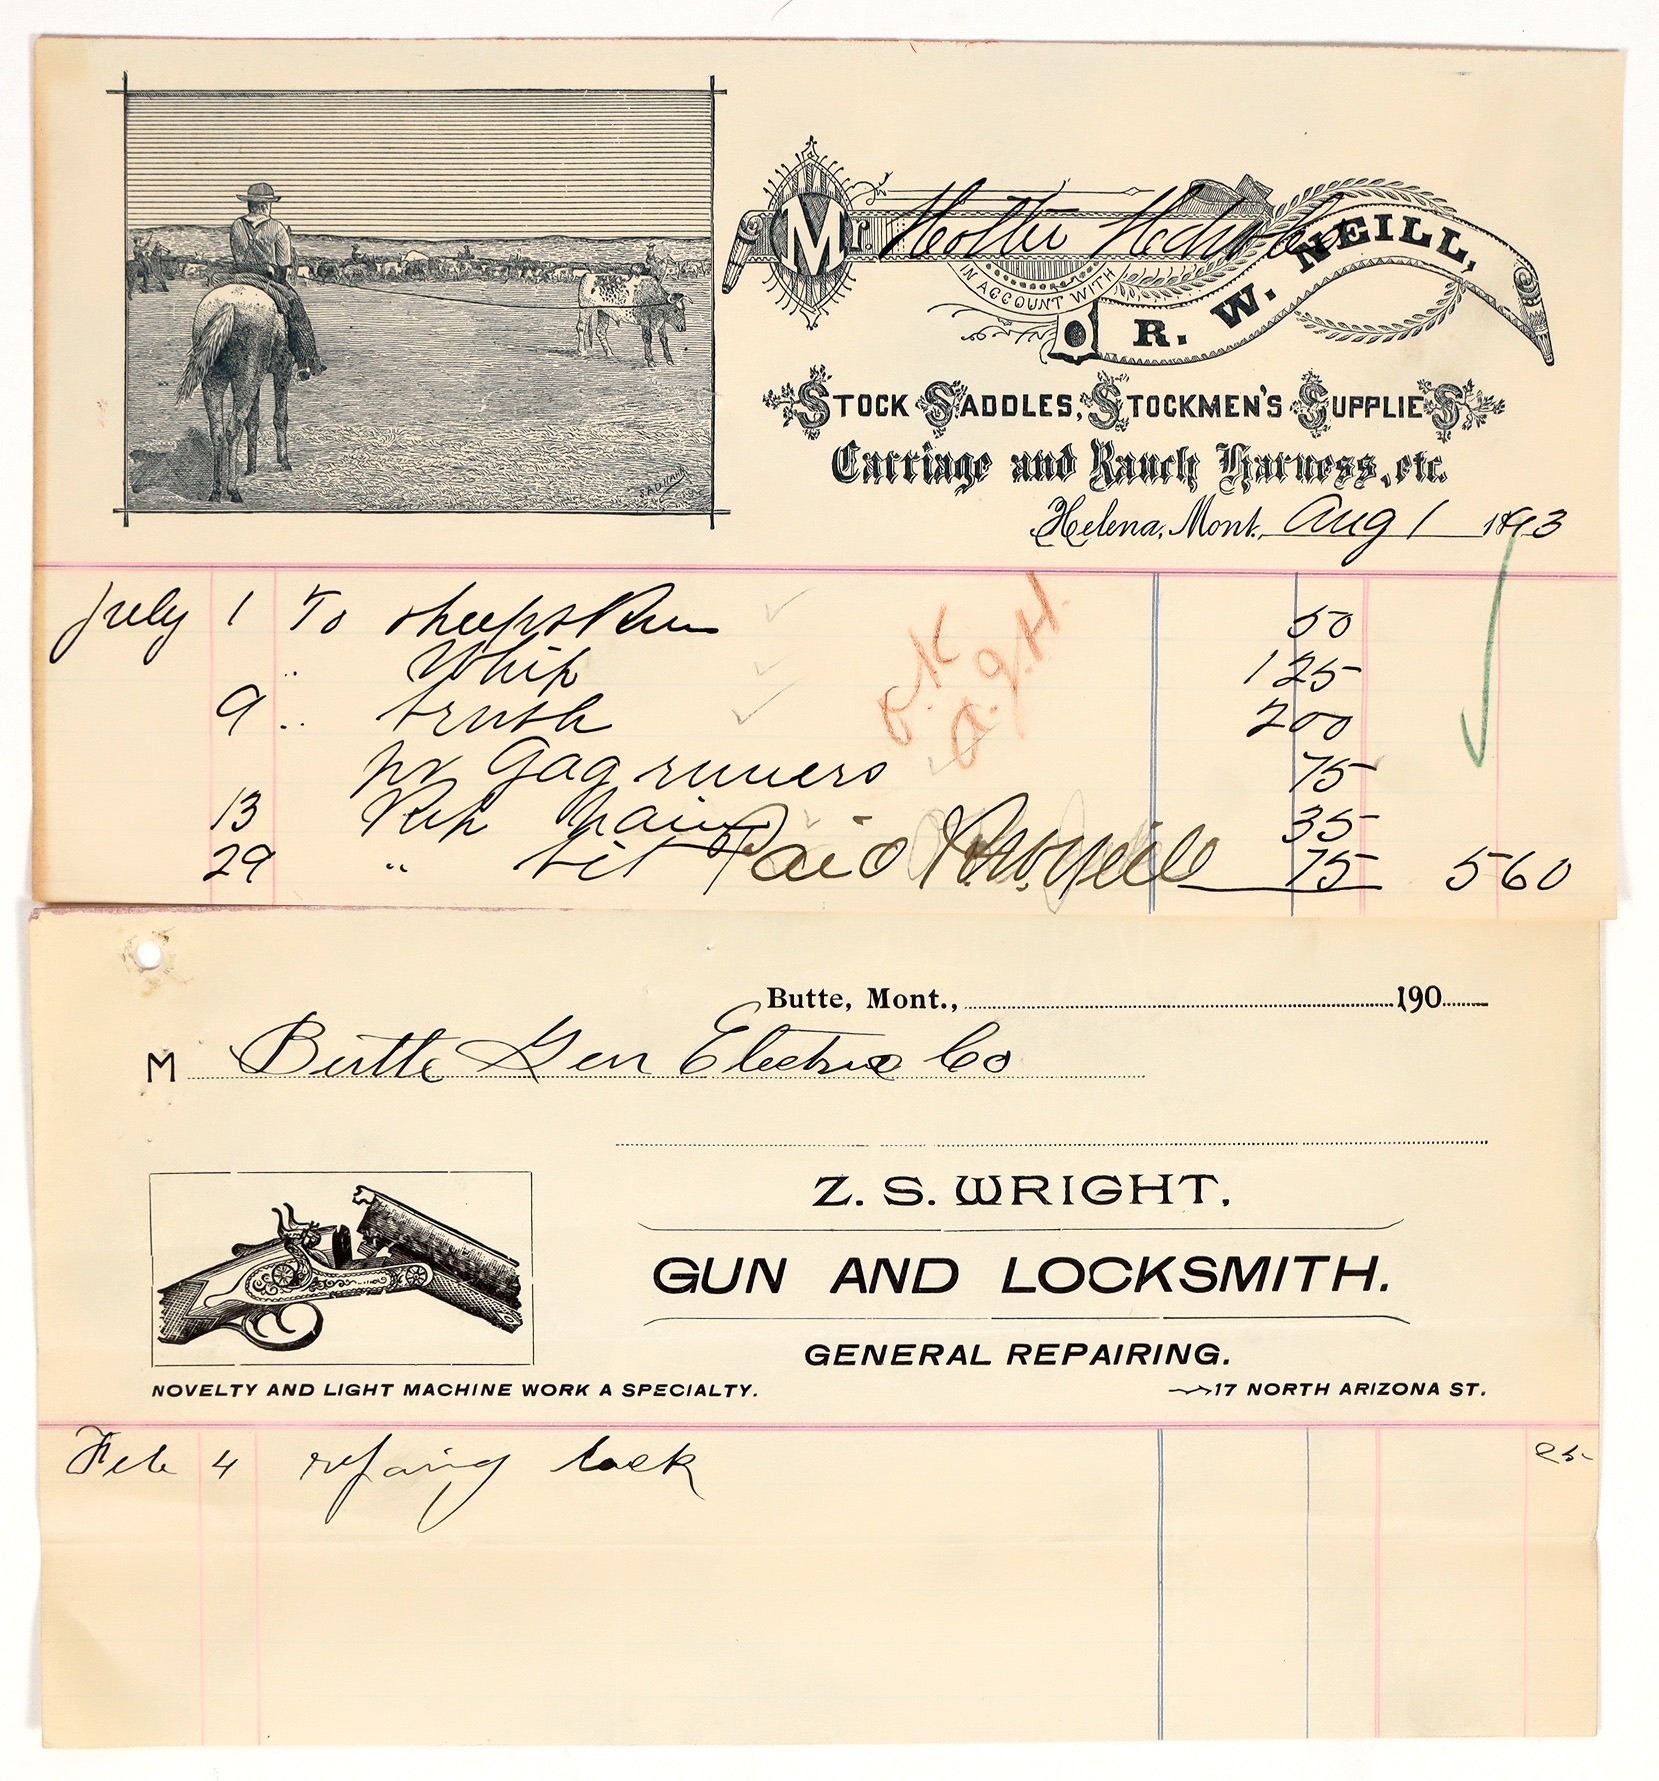 Mr. Holter Hdw Co
IN ACCOUNT WITH
R. W. NEILL,
STOCK SADDLES, STOCKMEN'S SUPPLIES
Carriage and Ranch Harness, etc.
Helena, Mont. Aug 1 1893
July 1 To sheepskin 50
" Whip 125
9 " brush 200
pr Gag runners 75
13 Rep 35
29 " bit 75 560
Paid R. W. Neill
O.K.
Butte, Mont., 190
M Butte Gen Electric Co
Z. S. WRIGHT,
GUN AND LOCKSMITH.
GENERAL REPAIRING.
NOVELTY AND LIGHT MACHINE WORK A SPECIALTY.
17 NORTH ARIZONA ST.
Feb 4 repairing lock 25